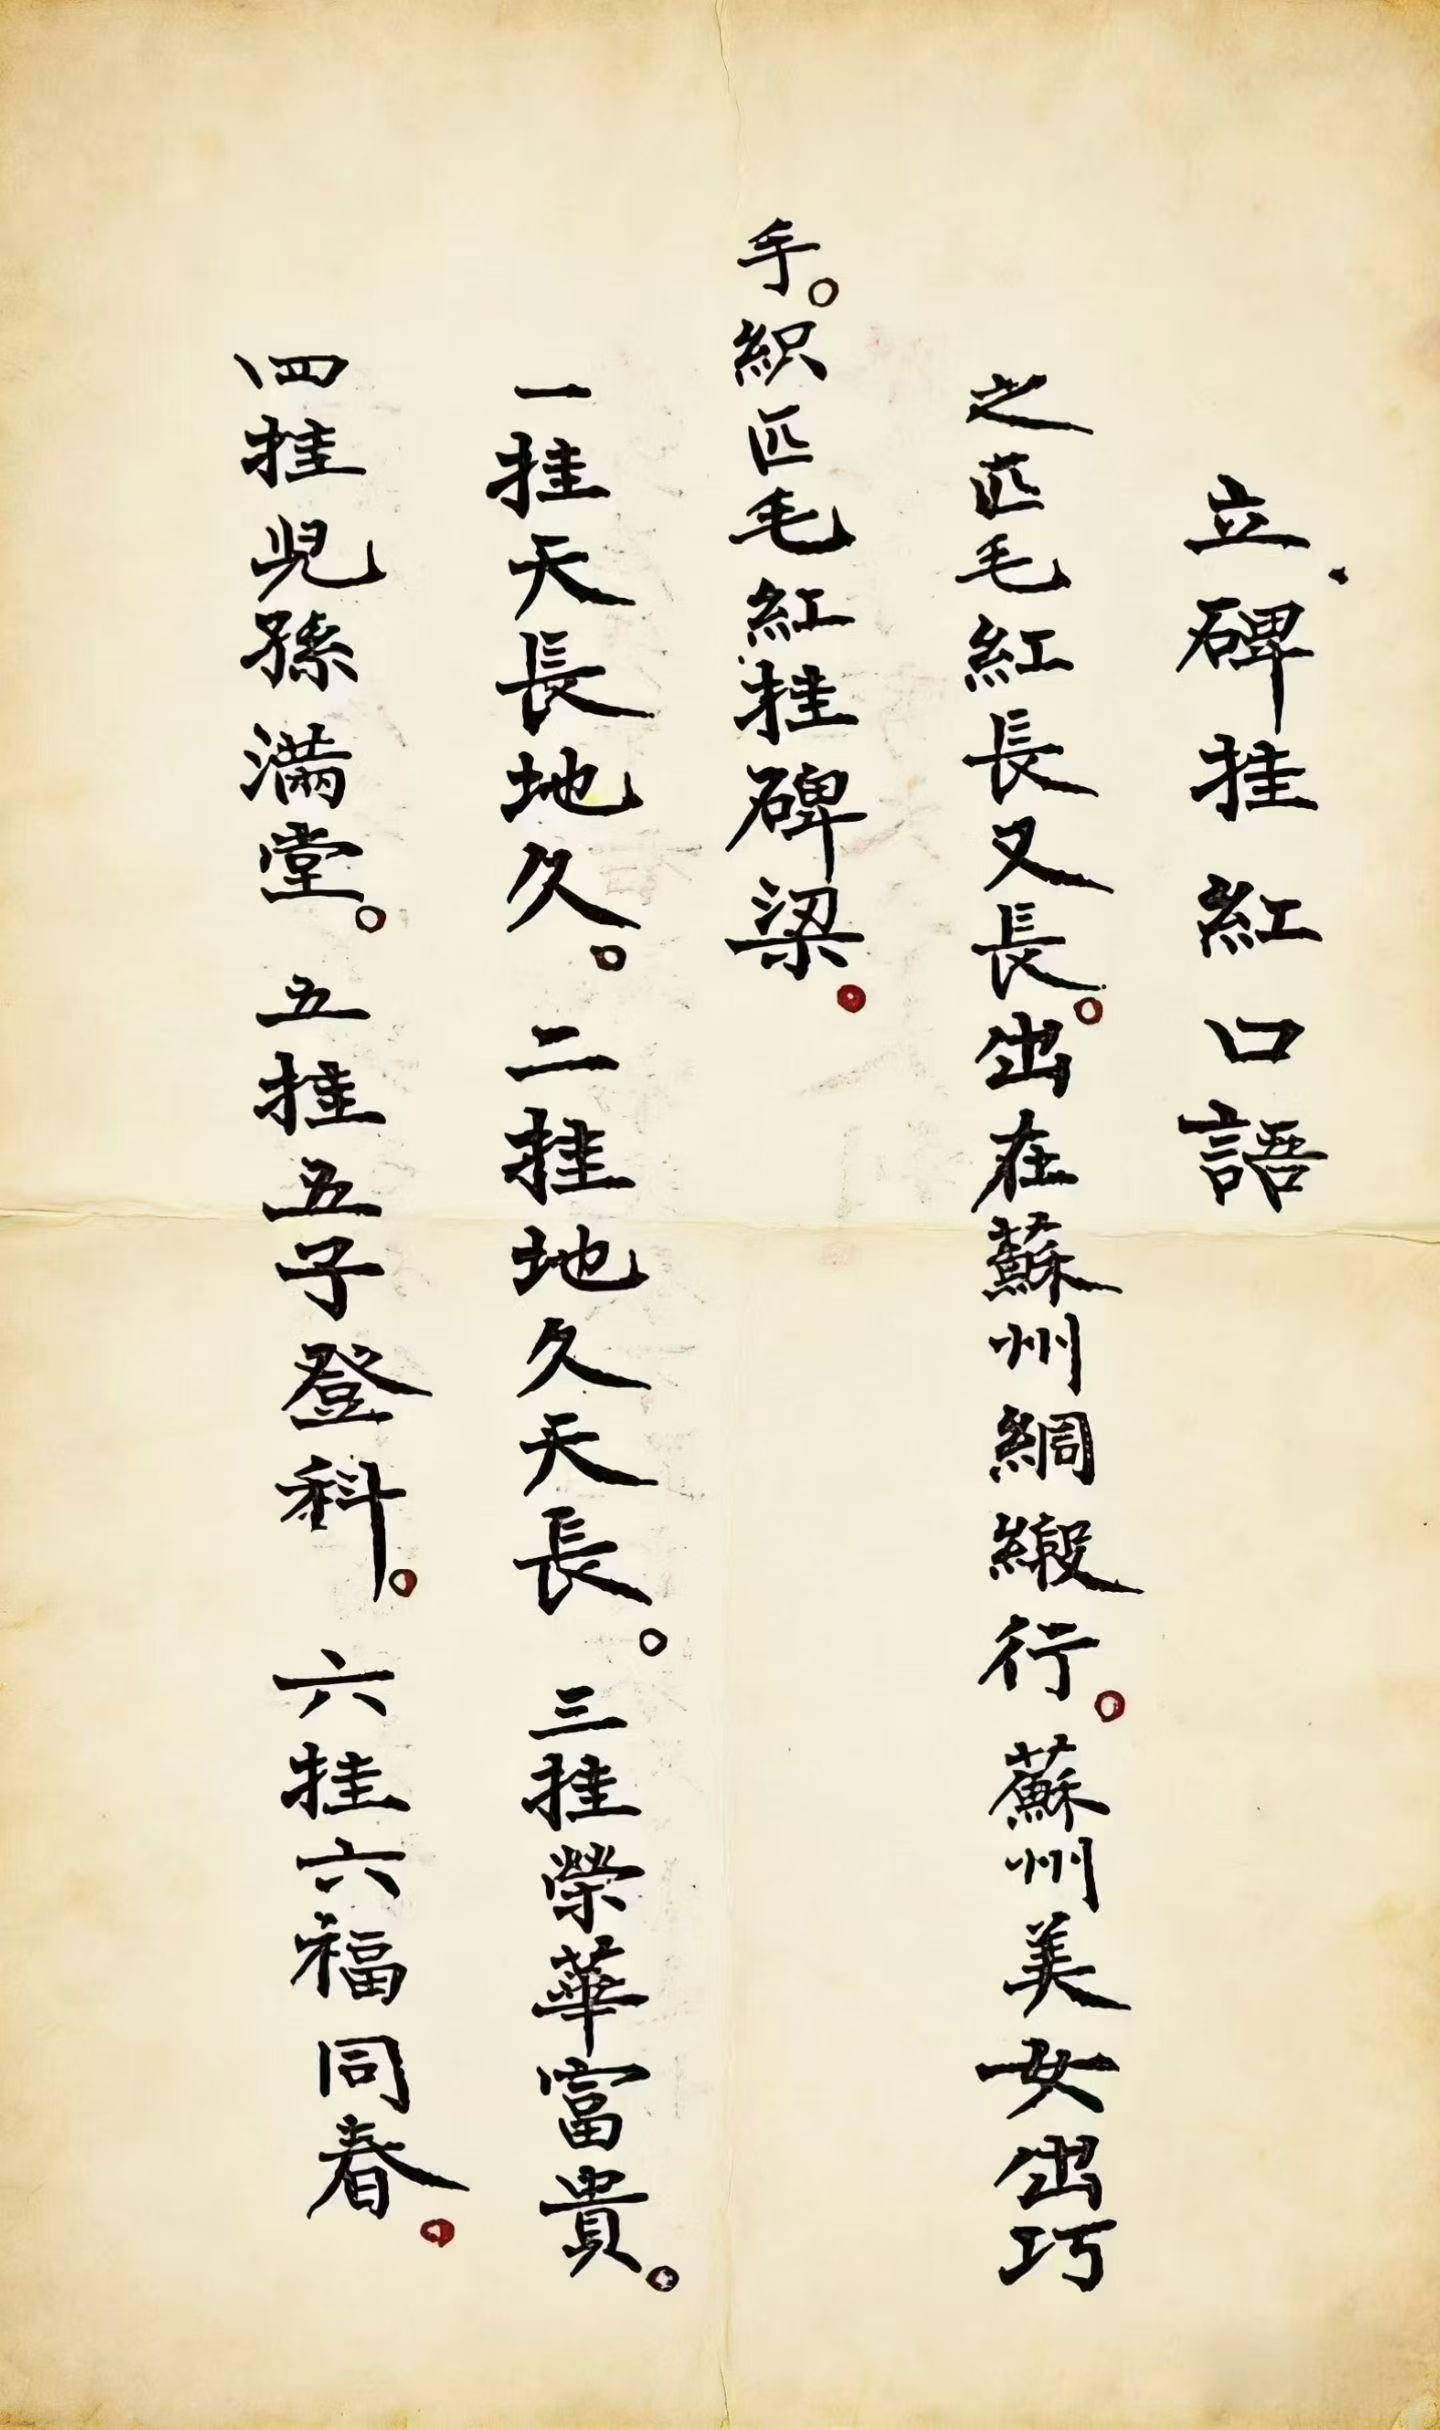 立碑挂紅口語
之匹毛紅長又長。出在蘇州綢緞行。蘇州美女出巧
手。織匹毛紅挂碑梁。
一挂天長地久。二挂地久天長。三挂榮華富貴。
四挂兒孫滿堂。五挂五子登科。六挂六福同春。